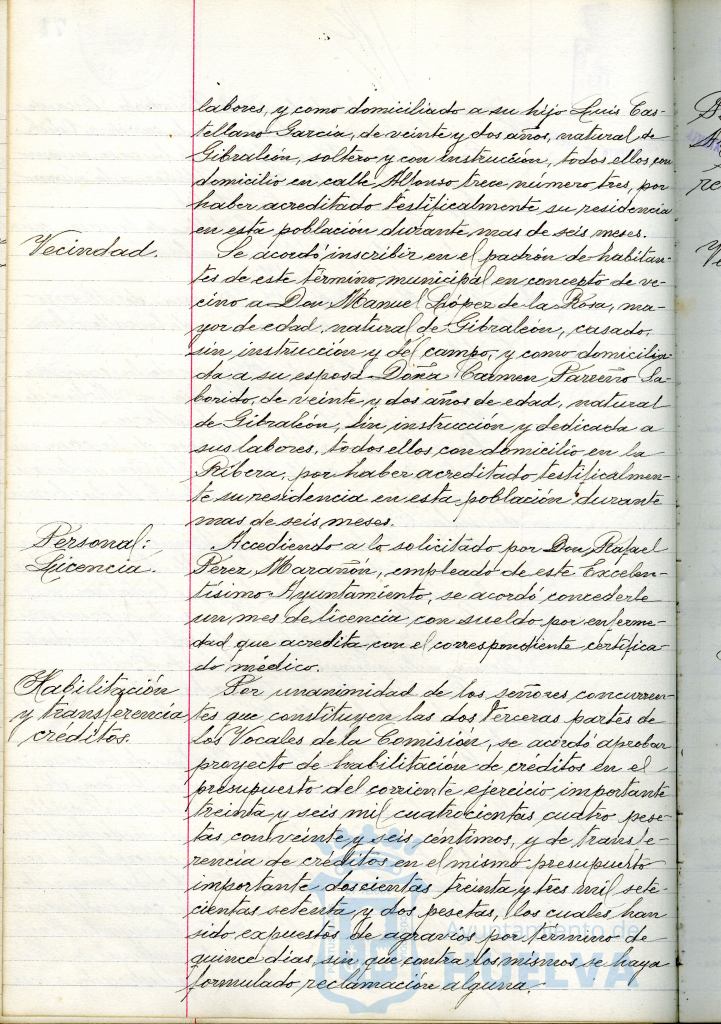 labores, y como domiciliado a su hijo Luis Cas-
tellano García, de veinte y dos años, natural de
Gibraleón, soltero y con instrucción, todos ellos con
domicilio en calle Alfonso trece número tres, por
haber acreditado testificalmente su residencia
en esta población durante mas de seis meses.
Vecindad.
Se acordó inscribir en el padrón de habitan-
tes de este término municipal en concepto de ve-
cino a Don Manuel López de la Rosa, ma-
yor de edad, natural de Gibraleón, casado,
sin instrucción y del campo, y como domicilia-
da a su esposa Doña Carmen Pareño La-
borido, de veinte y dos años de edad, natural
de Gibraleón, sin instrucción y dedicada a
sus labores, todos ellos con domicilio en la
Ribera, por haber acreditado testificalmen-
te su residencia en esta población durante
mas de seis meses.
Personal:
Licencia.
Accediendo a lo solicitado por Don Rafael
Pérez Marañón, empleado de este Excelen-
tísimo Ayuntamiento, se acordó concederle
un mes de licencia con sueldo por enferme-
dad que acredita con el correspondiente certifica-
do médico.
Habilitación
y transferencia
créditos.
Por unanimidad de los señores concurren-
tes que constituyen las dos terceras partes de
los Vocales de la Comisión, se acordó aprobar
proyecto de habilitación de créditos en el
presupuesto del corriente ejercicio importante
treinta y seis mil cuatrocientas cuatro pese-
tas con veinte y seis céntimos, y de transfe-
rencia de créditos en el mismo presupuesto
importante doscientas treinta y tres mil sete-
cientas setenta y dos pesetas, los cuales han
sido expuestos de agravios por término de
quince días, sin que contra los mismos se haya
formulado reclamación alguna.
Ayuntamiento de
HUELVA